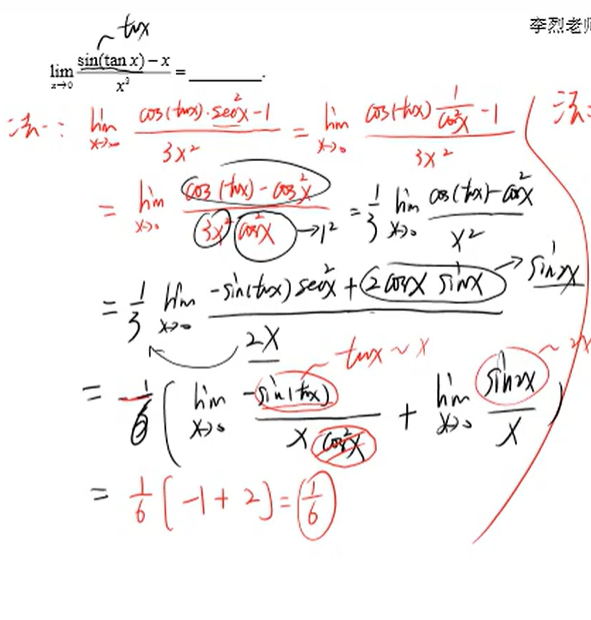 李烈老师
tanx
lim x→0 (sin(tan x) − x)/x³ = ______.
法一: lim x→∞ (cos(tanx)·sec²x−1)/(3x²) = lim x→0 (cos(tanx) 1/cos²x −1)/(3x²) 法
= lim x→0 (cos(tanx)−cos²x)/(3x² cos²x) →1² = 1/3 lim x→0 (cos(tanx)−cos²x)/x²
= 1/3 lim x→0 (−sin(tanx) sec²x + 2cosx sinx)/(2x) → sin2x
tanx ~ x ~ 2x
= 1/6 ( lim x→0 (−sin(tanx))/(x cos²x) + lim x→0 (sin2x)/x )
= 1/6 [−1+2] = 1/6